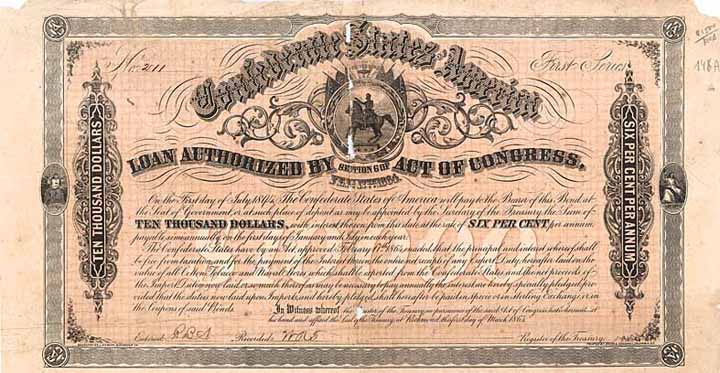 No 2011
First Series
148A
Confederate States America
LOAN AUTHORIZED BY SECTION 6 OF ACT OF CONGRESS,
FEB. 17TH 1864.
TEN THOUSAND DOLLARS
SIX PER CENT PER ANNUM
On the First day of July 1894, The Confederate States of America will pay to the Bearer of this Bond, at
the Seat of Government, or at such place of deposit as may be appointed by the Secretary of the Treasury, the Sum of
TEN THOUSAND DOLLARS, with interest thereon from this date at the rate of SIX PER CENT, per annum
payable semiannually, on the first days of January and July in each year.
The Confederate States have by an Act approved February 17th 1864 enacted, that the principal and interest whereof shall
be free from taxation, and for the payment of the Interest thereon, the entire net receipt of any Export Duty, hereafter laid on the
value of all Cotton, Tobacco and Naval Stores, which shall be exported from the Confederate States and the net proceeds of
the Import Duties now laid, or so much thereof as may be necessary to pay annually the interest, are hereby specially pledged: pro
vided that the duties now laid upon Imports, and hereby pledged, shall hereafter be paid in specie or in sterling Exchange, or in
the Coupons of said Bonds.
In Witness whereof the Register of the Treasury, in pursuance of the said Act of Congress, hath hereunto set
his hand and affixed the Seal of the Treasury, at Richmond this first day of March 1864
Entered
Recorded
Register of the Treasury